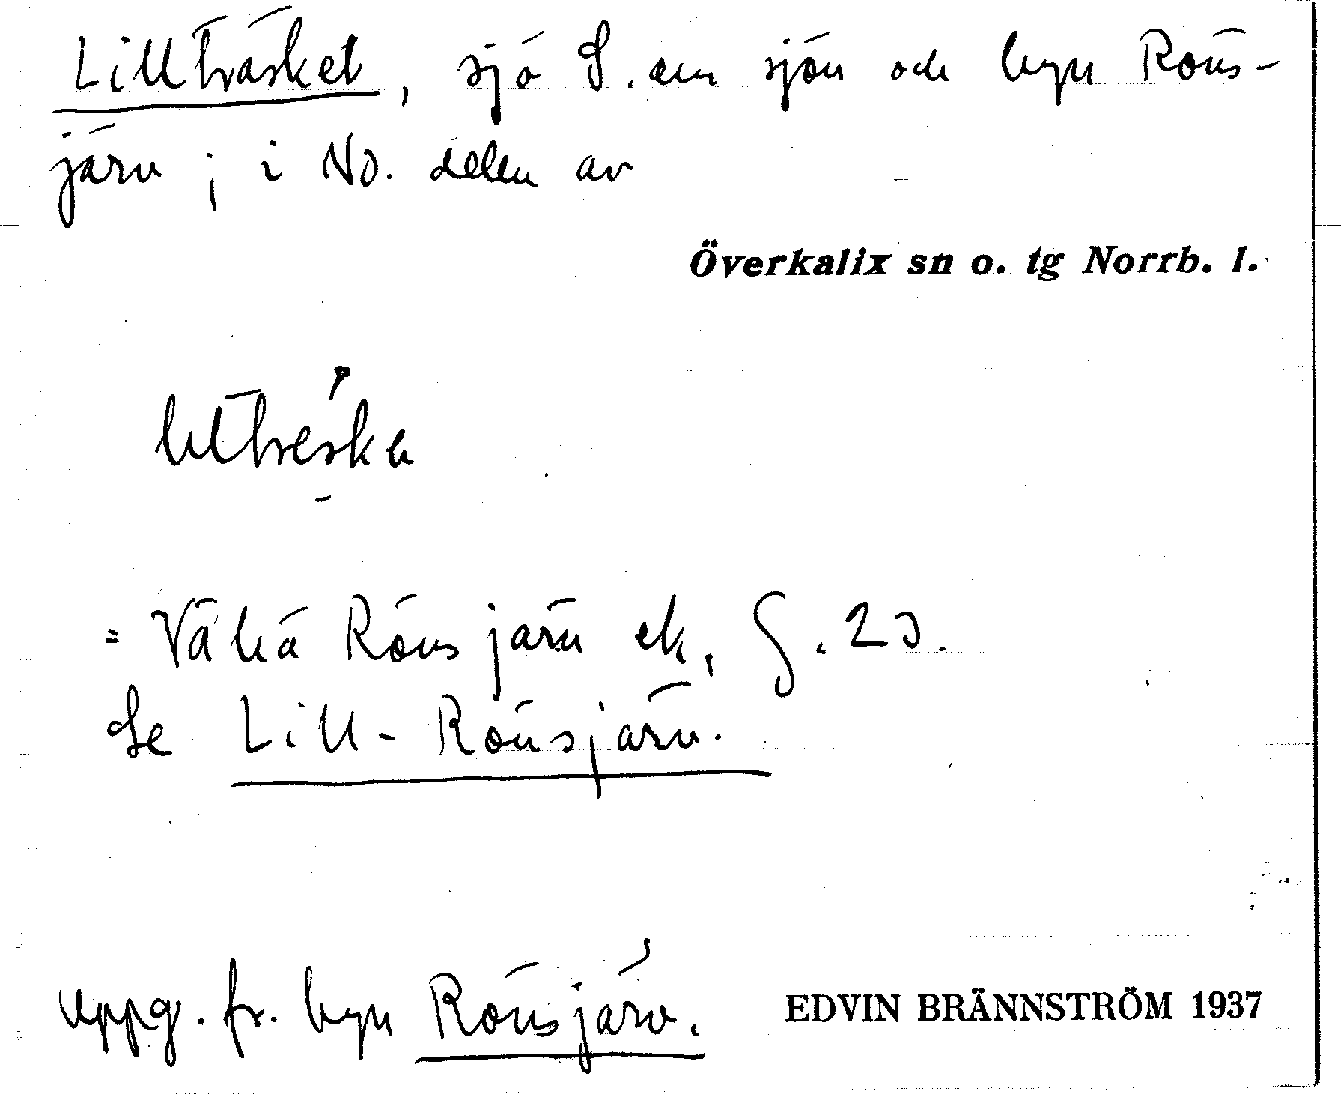 Lillträsket, sjö S. om sjön och byn Röns-
järv; i NO. delen av
Överkalix sn o. tg Norrb. l.
= Vähä Rönsjärv ek, G. 23.
Se Lill-Rönsjärv.
Uppg. fr. byn Rönsjärv.
EDVIN BRÄNNSTRÖM 1937